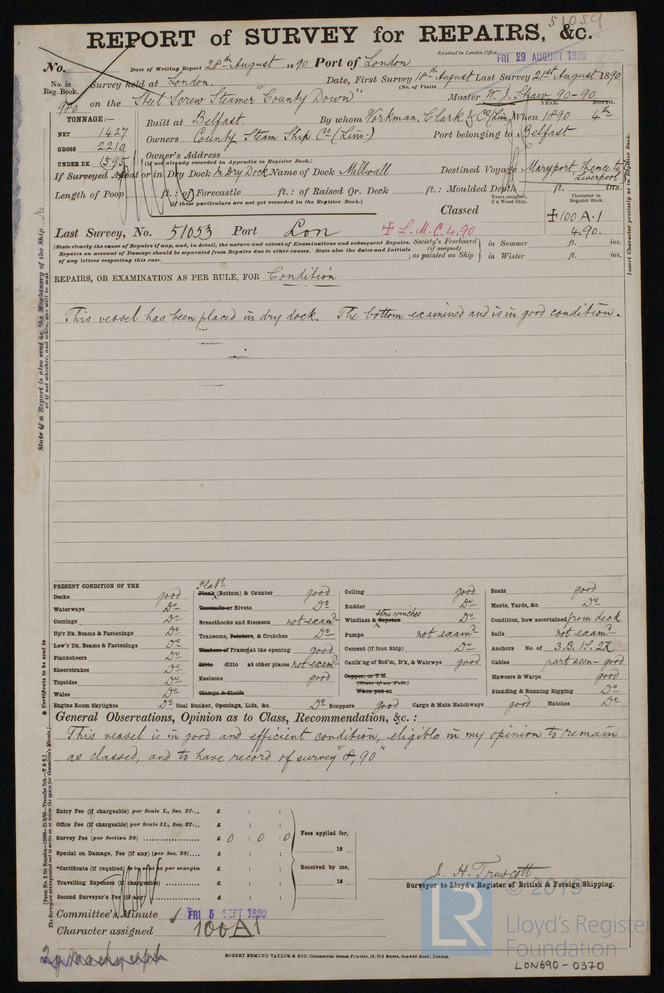 51059
REPORT of SURVEY for REPAIRS, &c.
Received in London Office, FRI 29 AUGUST 1890
No. Date of Writing Report 28th August 1890 Port of London
No. in Reg. Book. Survey held at London. Date, First Survey 18th August Last Survey 21st August 1890
(No. of Visits
980 on the Steel Screw Steamer "County Down" Master W. J. Shaw 90-90
TONNAGE:— YEAR. MONTH.
NET 1427 Built at Belfast. By whom Workman, Clark & Co (Lim) When 1890 4th
GROSS 2210 Owners County Steam Ship Co (Lim.) Port belonging to Belfast
UNDER DK. 1595 Owner's Address
(if not already recorded in Appendix to Register Book.)
If Surveyed Afloat or in Dry Dock In Dry Dock Name of Dock Millwall Destined Voyage Maryport, thence to Liverpool
Length of Poop ft.: of Forecastle ft.: of Raised Qr. Deck ft.: Moulded Depth ft. ins.
(If these particulars are not yet recorded in the Register Book.)
Classed
Character in Register Book.
✠100 A.1
4.90.
Last Survey, No. 51053 Port Lon ✠ L.M.C. 4.90
(State clearly the cause of Repairs if any, and, in detail, the nature and extent of Examinations and subsequent Repairs. Society's Freeboard (if assigned) as painted on Ship in Summer ft. ins.
Repairs on account of Damage should be separated from Repairs due to other causes. State also the dates and Initials
of any letters respecting this case. in Winter ft. ins.
REPAIRS, OR EXAMINATION AS PER RULE, FOR Condition
This vessel has been placed in dry dock. The bottom examined and is in good condition.
PRESENT CONDITION OF THE
Decks good
Waterways Do
Comings Do
Up'r Dk. Beams & Fastenings Do
Low'r Dk. Beams & Fastenings Do
Planksheers Do
Sheerstrakes Do
Topsides Do
Wales Do
Engine Room Skylights Do
Plat'g
Plank (Bottom) & Counter good
Treenails or Rivets Do
Breasthooks and Stemson not exam?
Transoms, Pointers, & Crutches Do
Timbers of Frame at the opening good
Ditto ditto at other places not exam?
Keelsons good
Clamps & Shelfs
Coal Bunker, Openings, Lids, &c. Do
Ceiling good
Rudder Do
stm winches
Windlass & Capstan Do
Pumps not exam?
Cement (if Iron Ship) Do
Caulk'ng of Bot'm, D'k, & Watrwys good
Copper, or Y.M.
(State if on Felt)
When put on
Scuppers good Cargo & Main Hatchways good
Boats good
Masts, Yards, &c. Do
Condition, how ascertained from deck
Sails not exam?
Anchors No. of 3.B. 1S. 2K
Cables part seen good
Hawsers & Warps good
Standing & Running Rigging Do
Hatches Do
General Observations, Opinion as to Class, Recommendation, &c.:
This vessel is in good and efficient condition, eligible in my opinion to remain
as classed, and to have record of survey "8,90"
Entry Fee (if chargeable) per Scale I., Sec. 27... £ : :
Office Fee (if chargeable) per Scale II., Sec. 27... £ : :
Survey Fee (per Section 28) £ 0 : 0 : 0 Fees applied for,
Special on Damage, Fee (if any) (per Sec. 28)... £ : : 18
*Certificate (if required) to go as per margin £ : : Received by me,
Travelling Expenses (if chargeable) £ : : 18
Second Surveyor's Fee (if any) £ : :
J. H. Truscott
Surveyor to Lloyd's Register of British & Foreign Shipping.
Committee's Minute FRI 5 SEPT 1890
Character assigned 100A1
ROBERT EDMUND TAYLOR & SON, Commercial Steam Printers, 19, Old Street, Goswell Road, London.
LR
© 2019
Lloyd's Register
Foundation
LON690-0370